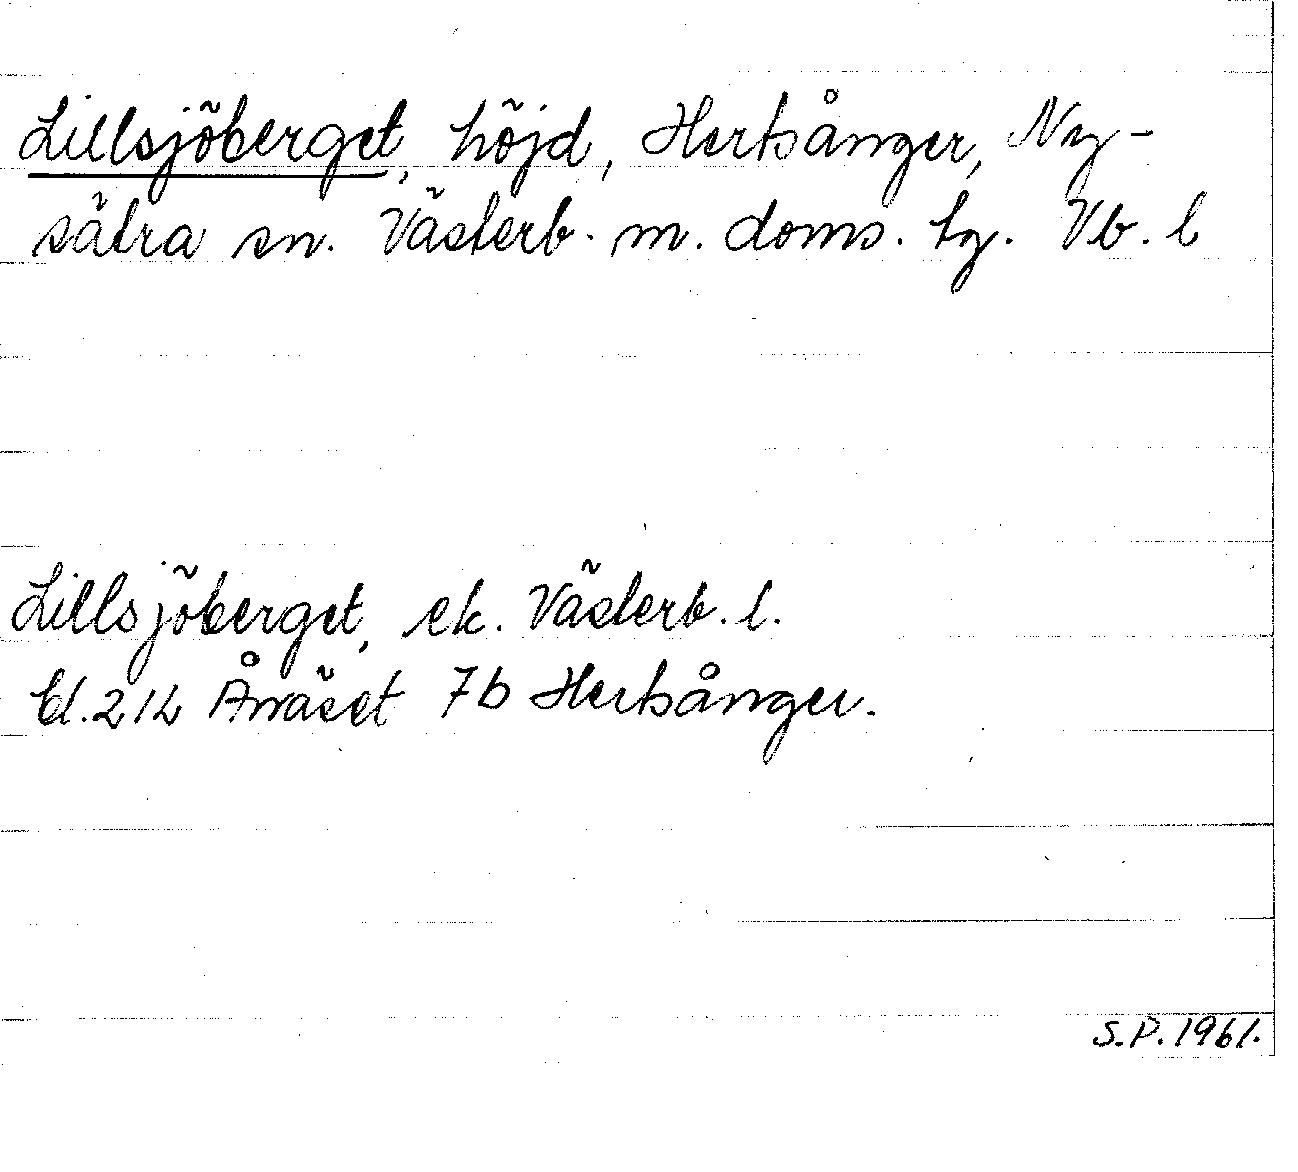 Lillsjöberget, höjd, Hertsånger, Ny-
sätra sn. Västerb. m. doms. tg. Vb. l
Lillsjöberget, ek. Västerb. l.
bl. 21L Ånäset 7b Hertsånger.
S.P. 1961.